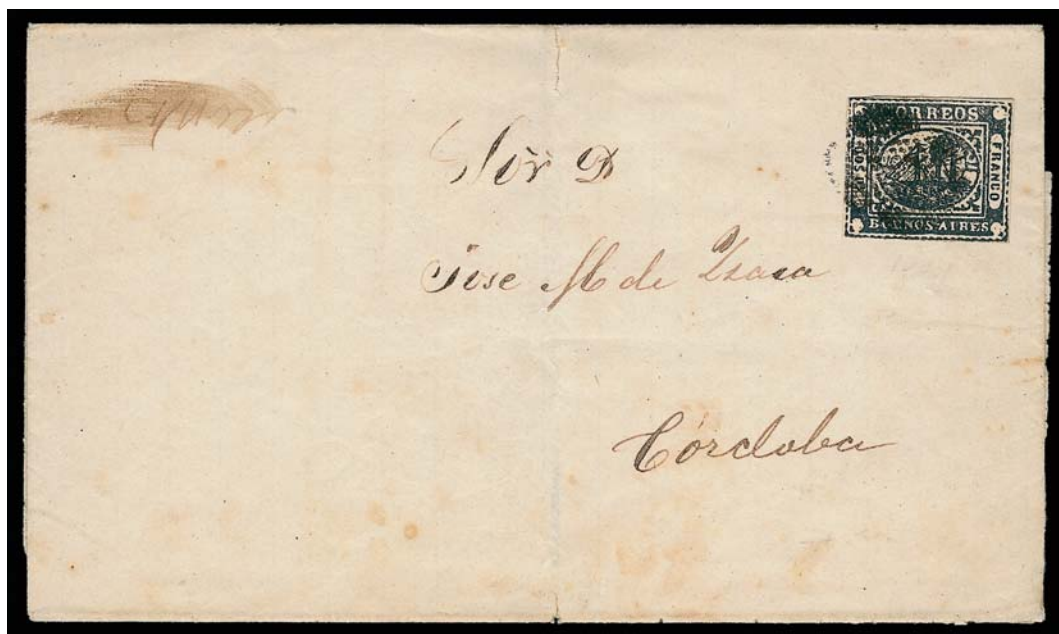 CORREOS
FRANCO
BUENOS AIRES
Sor D
Jose M de
Córdoba